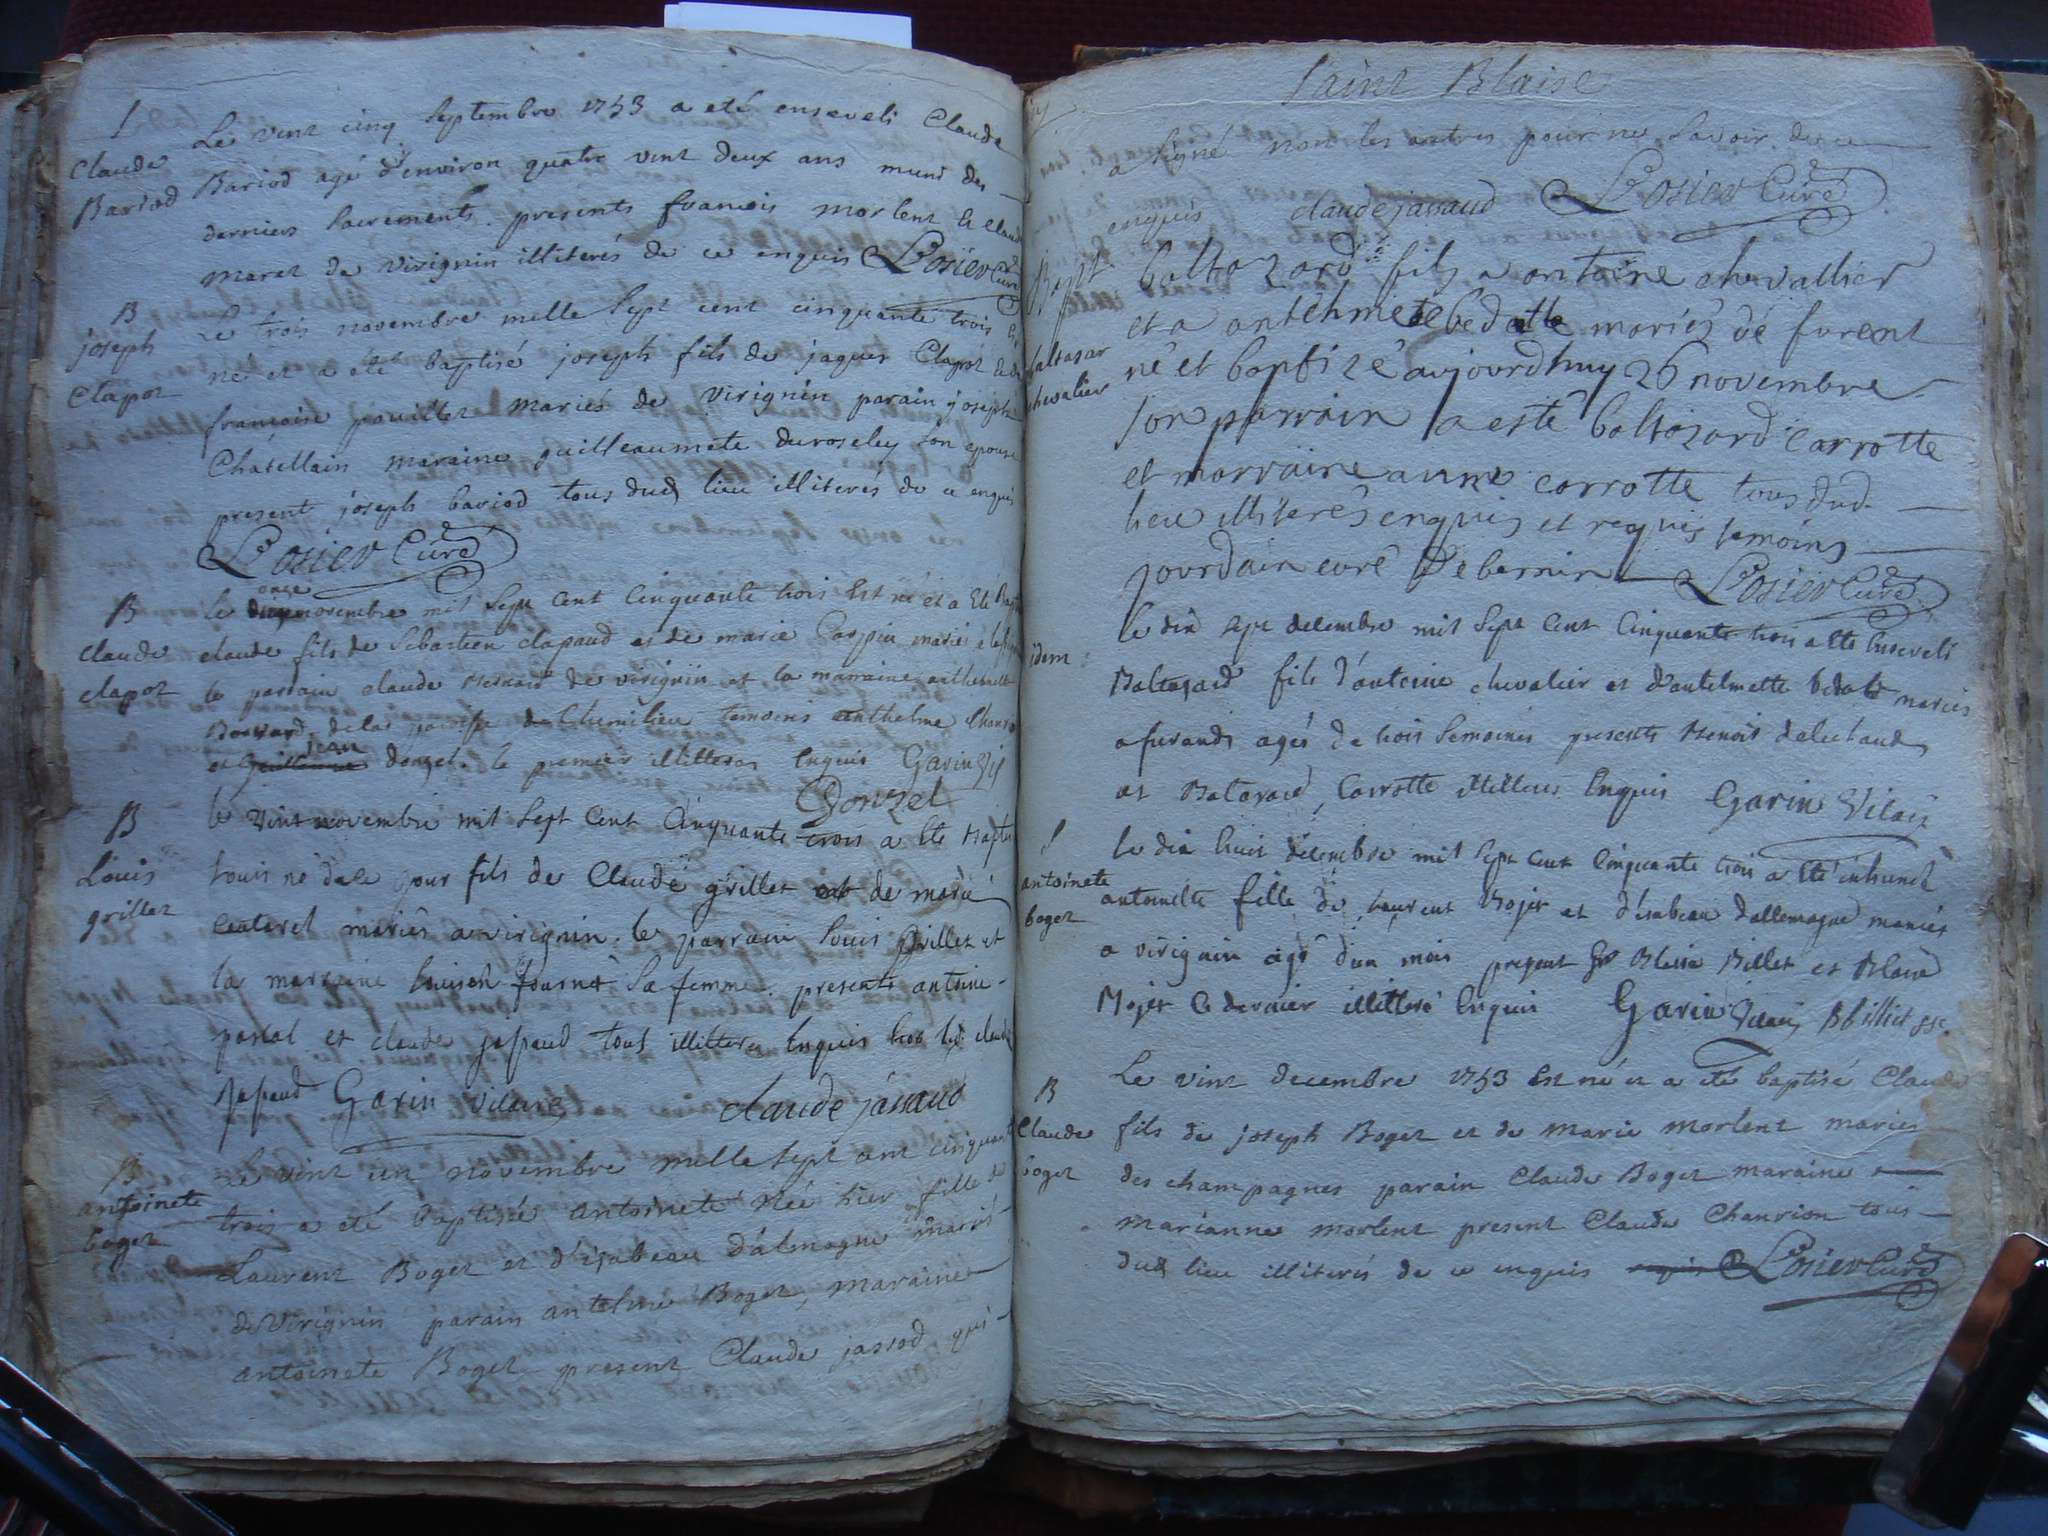 S
Claude
Bariod
Le vint cinq Septembre 1753 a eté enseveli Claude
Bariod agé d'environ quatre vint deux ans muni des
derniers Sacrements. presents francois morlent et claude
maret de virignin illiterés de ce enquis Losier Curé
B
joseph
Clapot
Le trois novembre mille Sept cent cinquante trois est
né et a eté baptisé joseph fils de jaques Clapot et de
francoise pauillet mariés de virignin parain joseph
Chatellain maraine guilleaumete duroseley son epouse
present joseph bariod tous dud lieu illiterés de ce enquis
Losier Curé
B
claude
clapot
onze
le novembre mil sept cent cinquante trois Est né et a Eté Bapt
claude fils de Sébastien clapaud et de marie Carpin marié a
le parrain claude de virignin et la marraine anthelmette
de la de Chemilieu temoins anthelme
jean
et Guillaume donzel. le premier illitteres Enquis Garin
Donzel
B
Louis
grillet
le vint novembre mil sept Cent Cinquante trois a Ete Baptis
Louis né dud jour fils de Claude grillet et de marie
mariés a virignin. le parrain Louis Grillet et
la marraine Louise fournet sa femme. presents antoine
pascal et claude jassaud tous illitteres Enquis hors led. claude
jassaud Garin vicaire claude jassaud
B
antoinete
boget
Le vint un novembre mille Sept cent cinquante
trois a eté baptisée antoinete née hier fille de
Laurent Boget et d'isabeau d'almagne mariés
de virignin parain antelme Boget, maraine
antoinete Boget present Claude jassod qui
Saint Blaise
a signé non les autres pour ne savoir de ce
enquis claude jassaud Losier Curé
Bapt.
baltasar
chevalier
baltazard fils a antoine chevallier
et a anthelmete bedatte mariés de furent
né et baptizé aujourdhuy 26 novembre
son parrain a esté baltazard carrotte
et marraine anne carrotte tous dud
lieu illiterés enquis et requis temoins
jourdain curé De bernin Losier Curé
idem
le dix sept decembre mil Sept Cent Cinquante trois a Ete Enseveli
Baltazard fils d'antoine chevalier et d'antelmette bedatt mariés
a furands agés de trois Semaines presents Benoit delechaud
et Batazard Carrotte illitteres Enquis Garin Vicaire
S
antoinete
boget
le dix huit décembre mil Sept Cent Cinquante trois a Eté inhumée
antoinette fille de Laurent Bojet et d'isabeau dallemagne mariés
a virignin agé d'un mois present Blaise Billet et Blaise
Bojet le dernier illitteré Enquis Garin Vicaire BBilliet
B
Claude
boget
Le vint decembre 1753 Est né et a eté baptisé Claude
fils de joseph Boget et de marie morlent mariés
des champagnes parain Claude Boget maraine
marianne morlent present Claude Chanrion tous
dud lieu illiterés de ce enquis Losier Curé